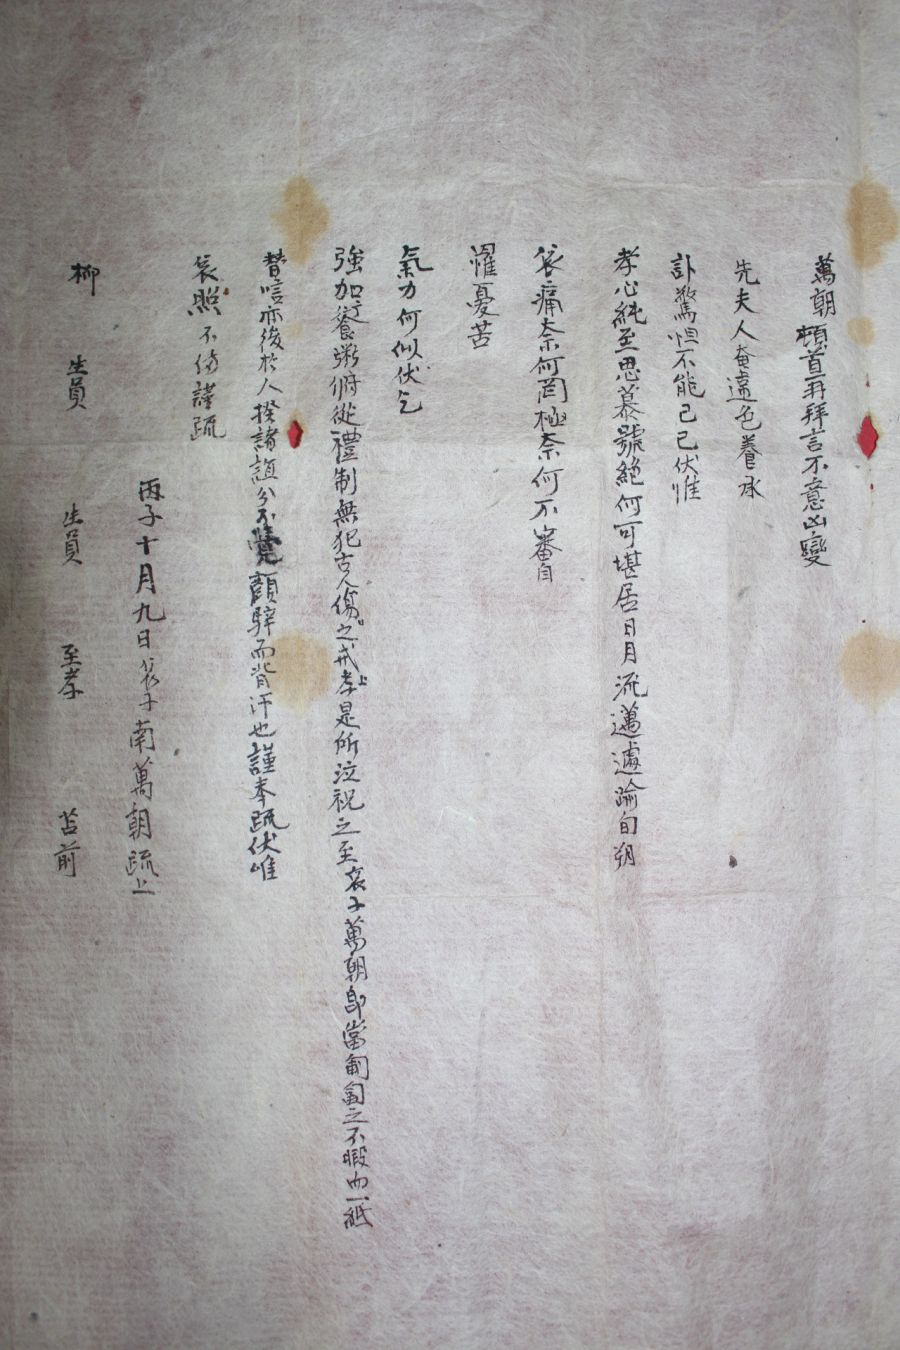 萬朝頓首再拜言不意凶變
先夫人奄違色養承
訃驚怛不能已已伏惟
孝心純至思慕號絕何可堪居日月流邁遽踰旬朔
哀痛奈何罔極奈何不審自
罹憂苦
氣力何似伏乞
強加餐粥俯從禮制無犯古人傷之戒孝是所泣祝之至哀子萬朝卽當匍匐之不暇而一紙
替唁亦後於人揆諸誼分不覺顔騂而背汗也謹奉疏伏惟
哀照不備謹疏
丙子十月九日哀子南萬朝疏上
柳 生員 生員 至孝 苫前